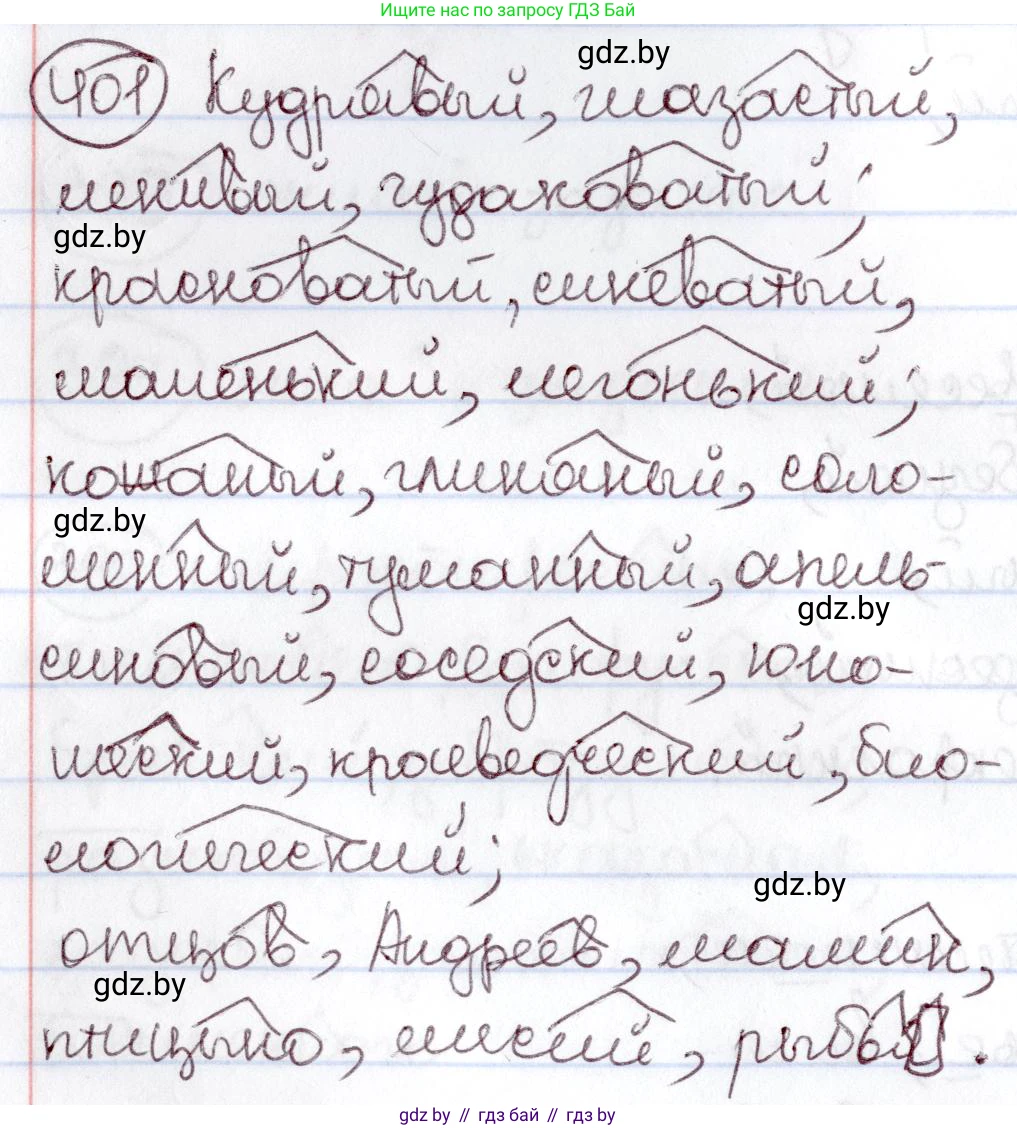 Ищите нас по запросу ГДЗ Бай
gdz.by
401 Кудрявый, глазастый,
ленивый, чудаковатый;
gdz.by
красноватый, синеватый,
маленький, лёгонький;
кожаный, глиняный, соло-
gdz.by
менный, туманный, апель-
gdz.by
синовый, соседский, юно-
шеский, краеведческий, био-
логический;
gdz.by
отцов, Андреев, мамин,
gdz.by
птицыно, лисий, рыбья.
gdz.by // гдз бай // гдз by